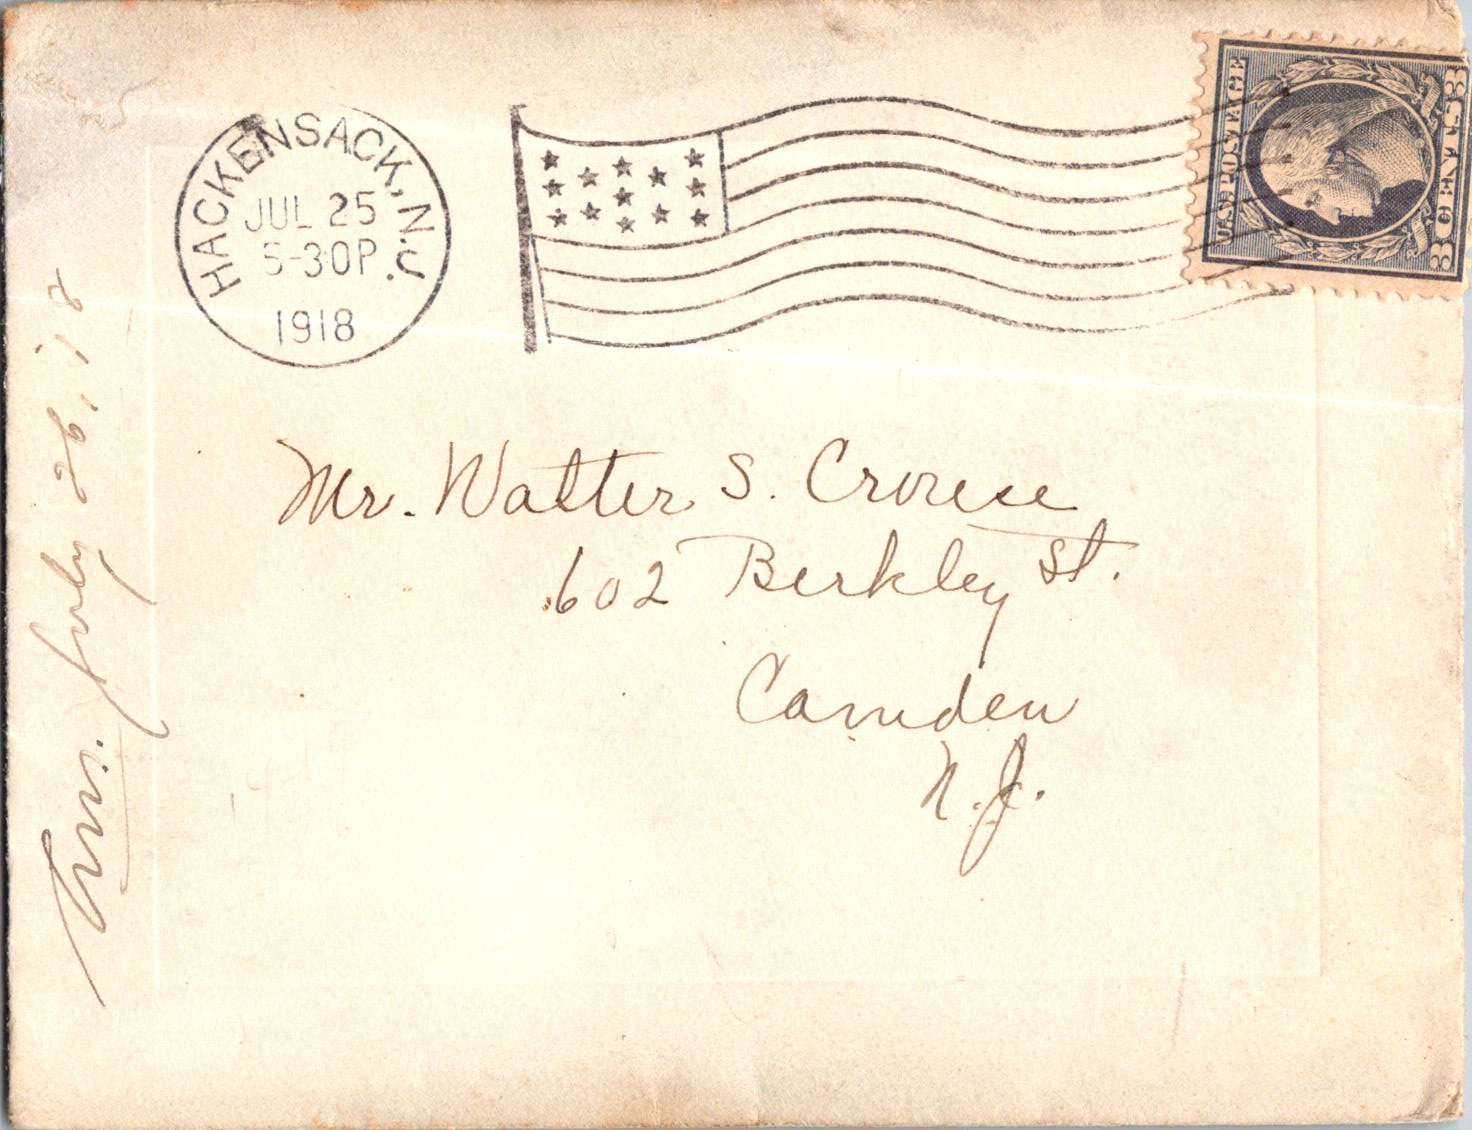 HACKENSACK, N.J.
JUL 25
5-30P
1918
U.S. POSTAGE
3 CENTS 3
Mr. Walter S. Crouse
602 Berkley St.
Camden
N.J.
Ans. July 26, '18